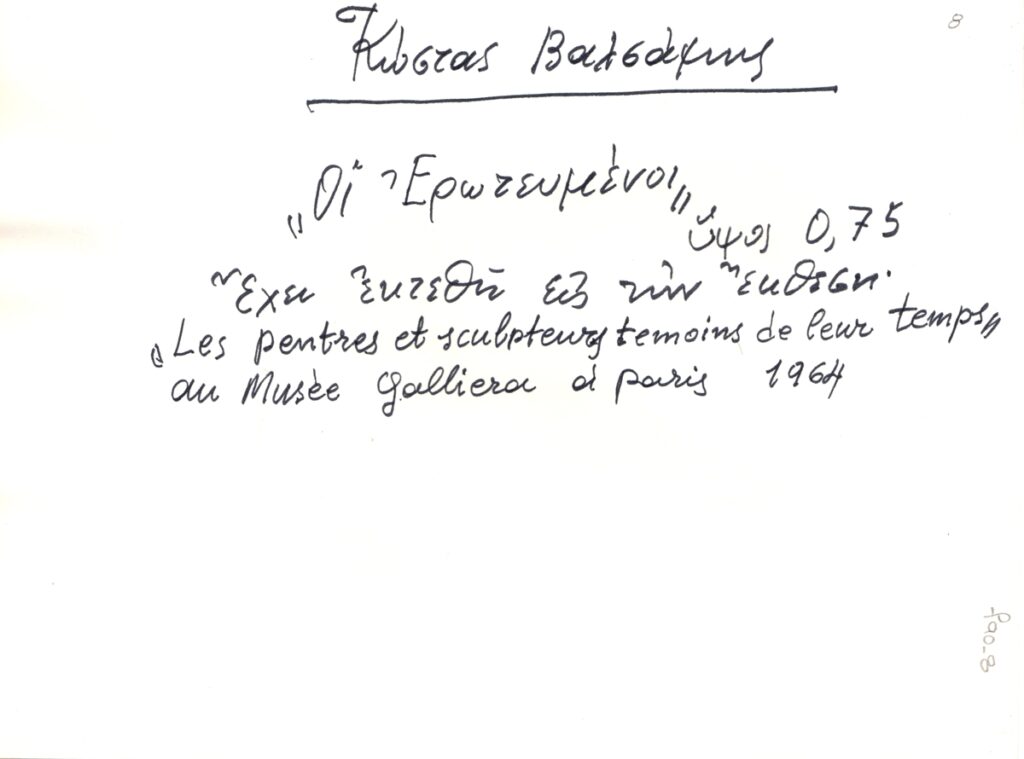 8
Κώστας Βαλσάμης
„Οἱ Ἐρωτευμένοι„
ὕψος 0,75
Ἔχει ἐκτεθῆ εἰς τὴν ἔκθεση.
„Les pentres et sculpteurs temoins de leur temps„
au Musée Galliera à paris 1964
φαο-8